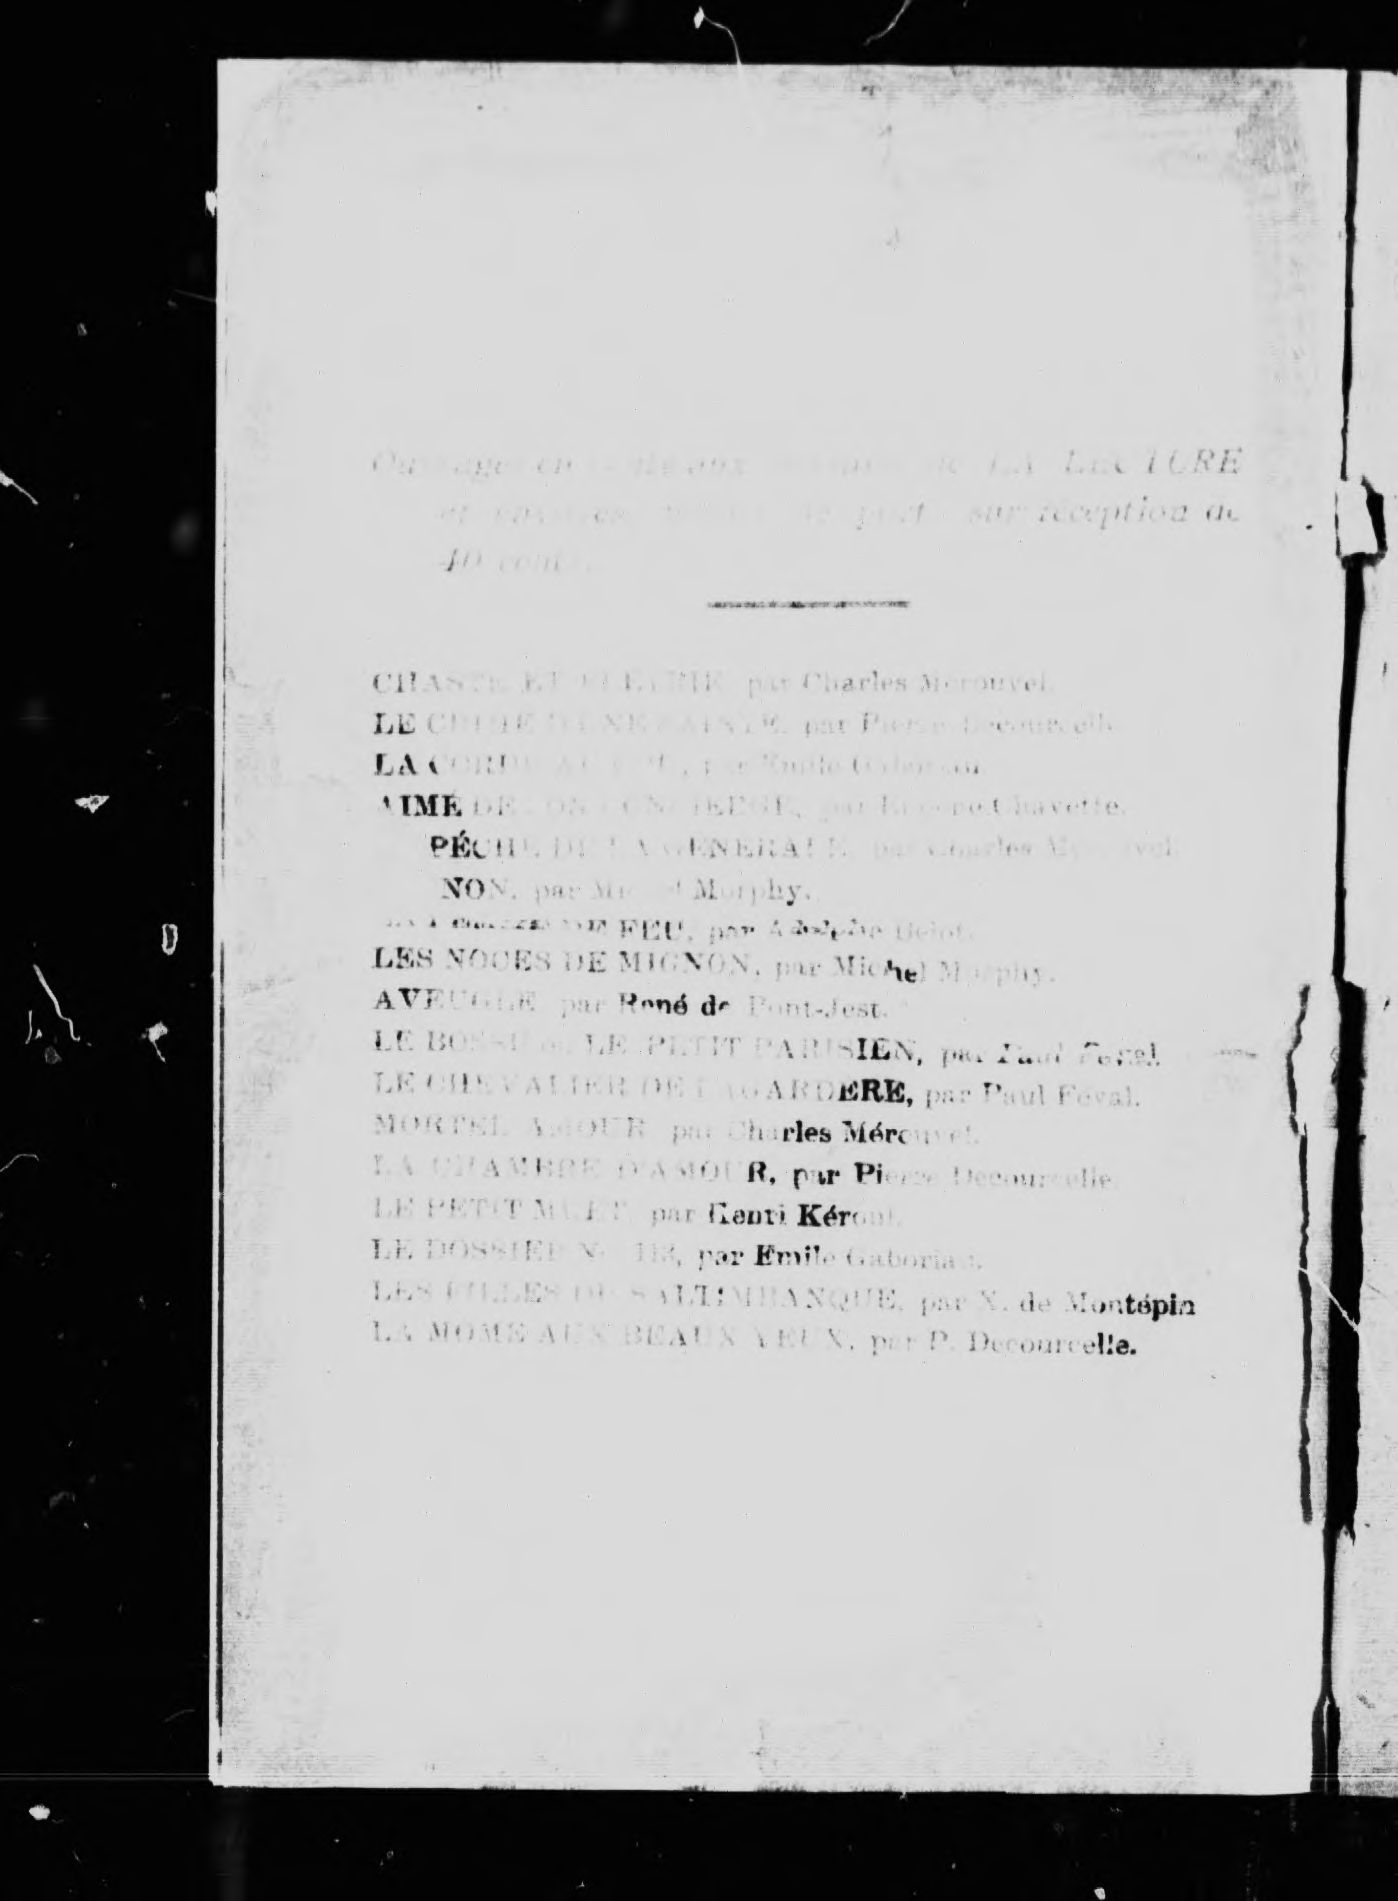 Ouvrages en vente aux bureaux de LA LECTURE
et envoyés de port sur réception de
40 cents.
CHASTE ET FLETRIE, par Charles Mérouvel.
LE CRIME D'UNE SAINTE, par Pierre Decourcelle
LA CORDE AU COU, par Emile Gaboriau.
AIMÉ DE SON CONCIERGE, par Eugène Chavette.
PÉCHÉ DE LA GENERALE, par Charles Mérouvel
NON, par Michel Morphy.
DE FEU, par Adolphe Belot.
LES NOCES DE MIGNON, par Michel Morphy.
AVEUGLE, par René de Pont-Jest.
LE BOSSU ou LE PETIT PARISIEN, par Paul Féval
LE CHEVALIER DE LAGARDERE, par Paul Féval.
MORTEL AMOUR, par Charles Mérouvel.
LA CHAMBRE D'AMOUR, par Pierre Decourcelle.
LE PETIT MUET, par Henri Kéroul.
LE DOSSIER No 113, par Emile Gaboriau.
LES FILLES DU SALTIMBANQUE, par X. de Montépin
LA MOME AUX BEAUX YEUX, par P. Decourcelle.